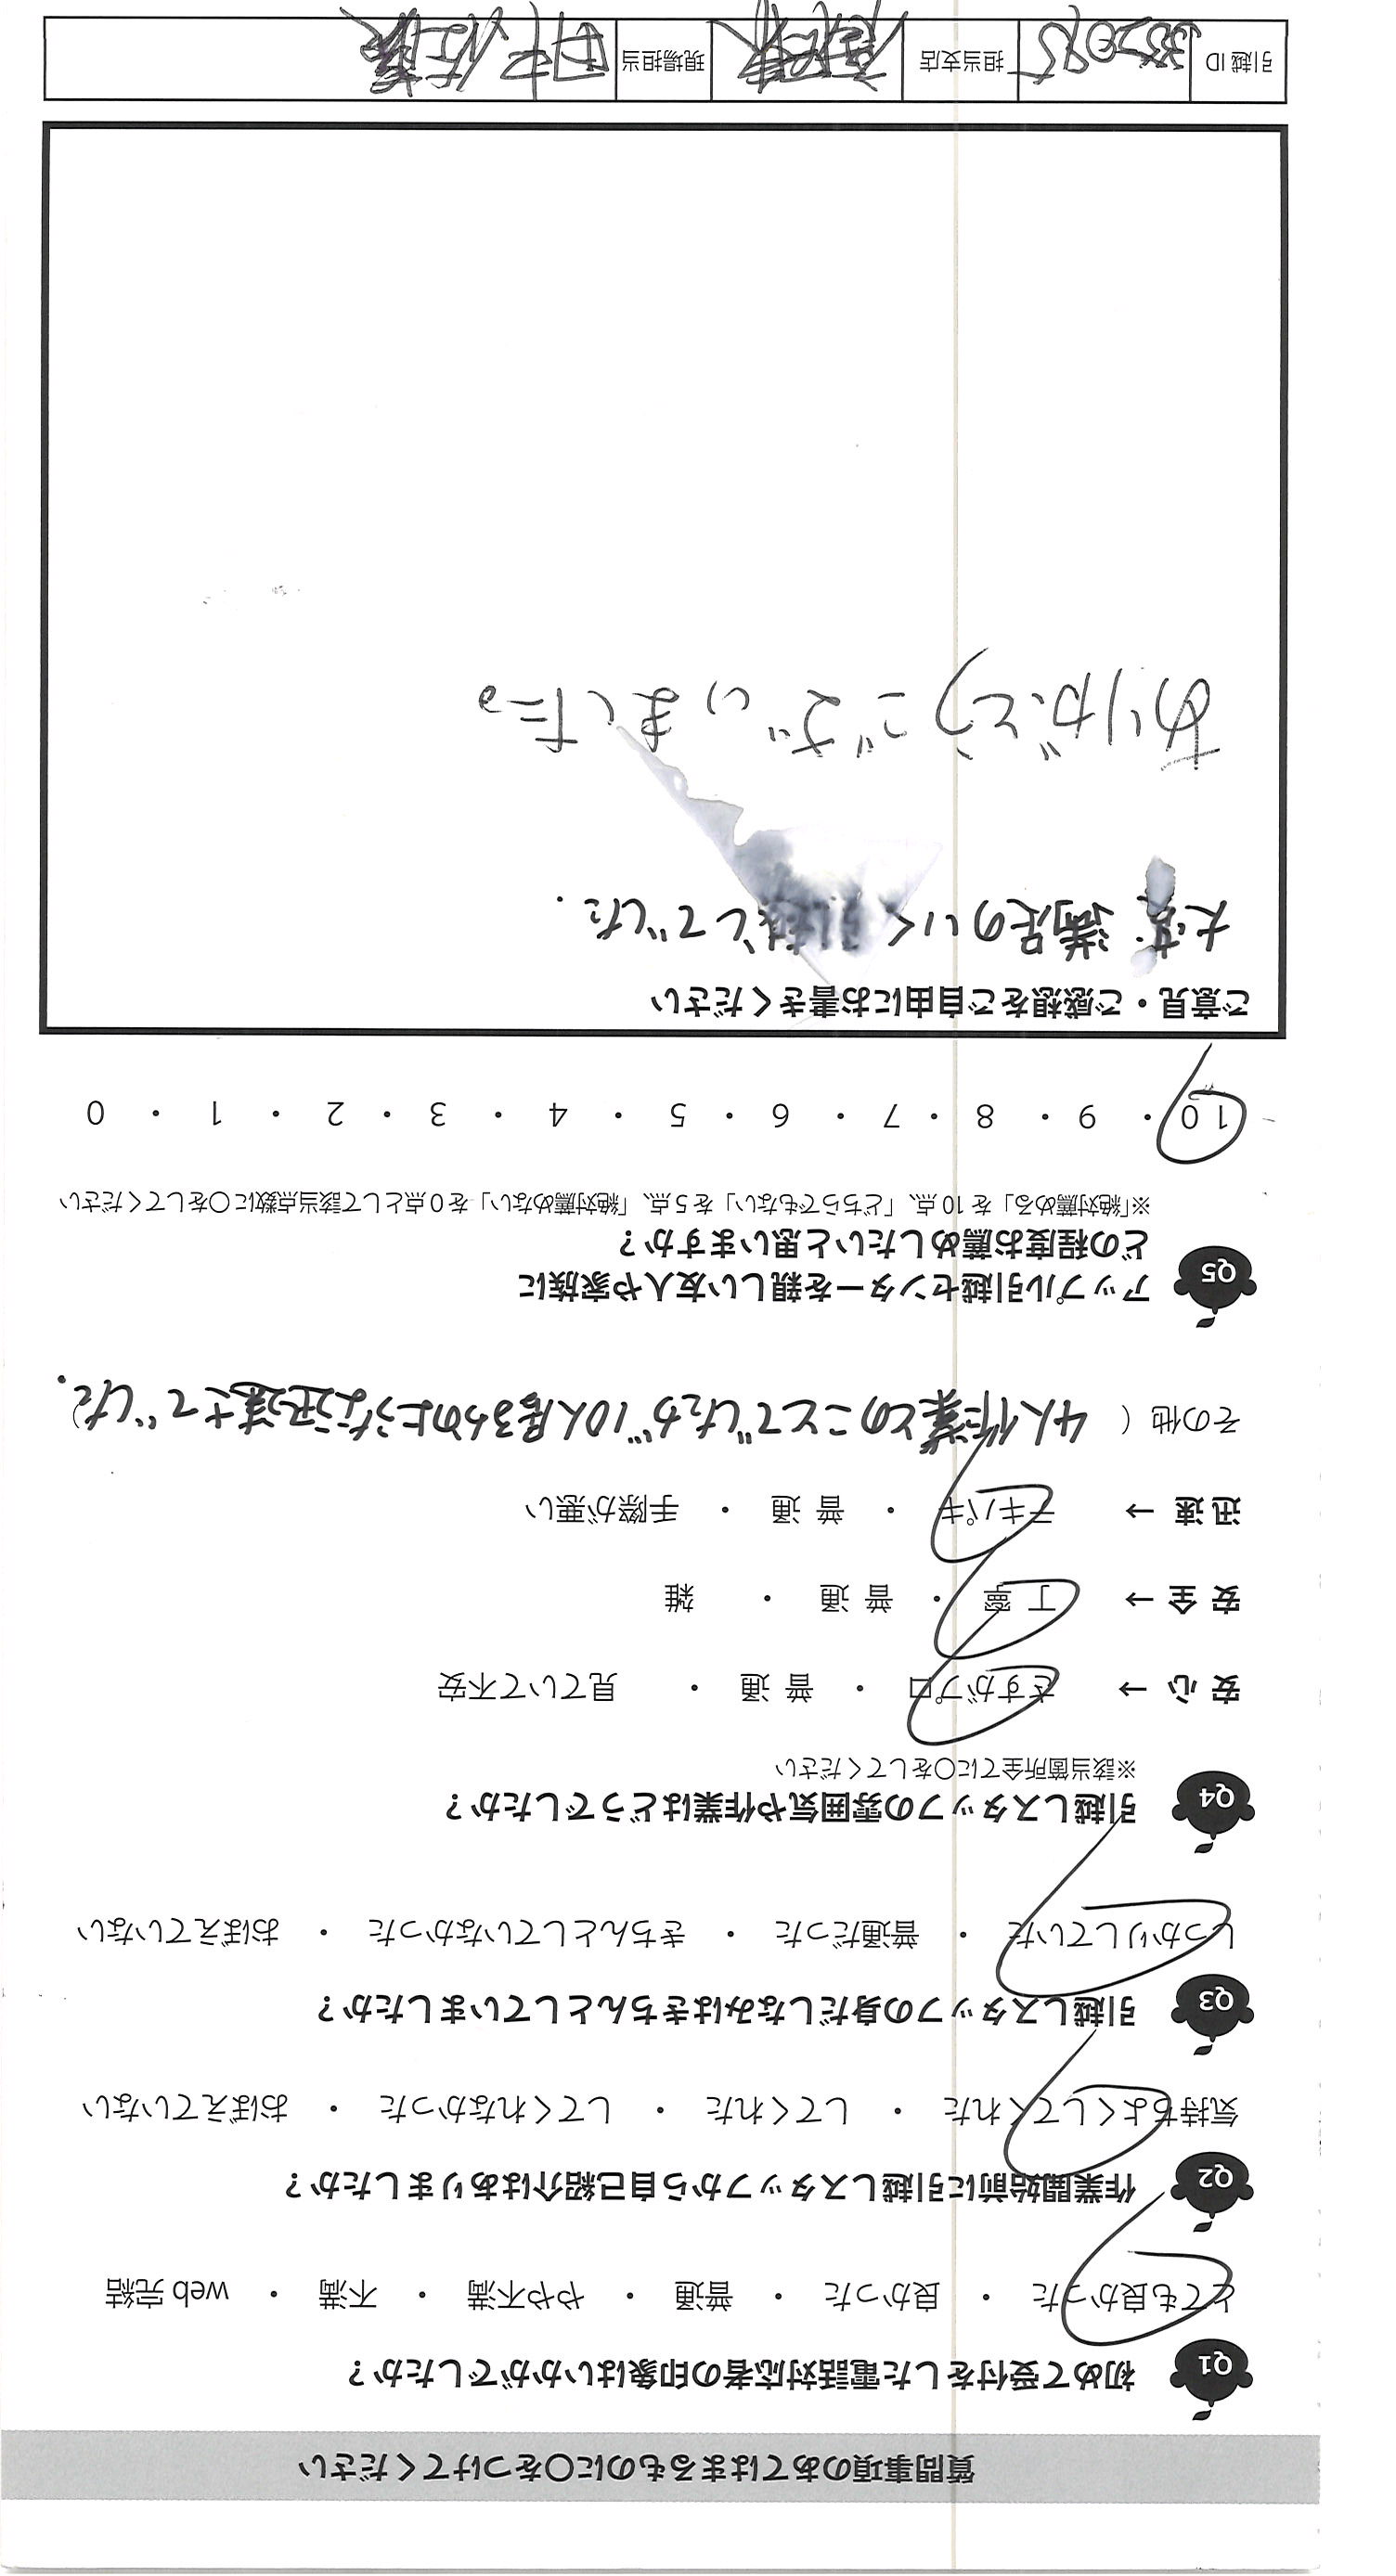 質問事項のあてはまるものに〇をつけてください
Q1 初めて受付をした電話対応者の印象はいかがでしたか？
とても良かった ・ 良かった ・ 普通 ・ やや不満 ・ 不満 ・ web 完結
Q2 作業開始前に引越しスタッフから自己紹介はありましたか？
気持ちよくしてくれた ・ してくれた ・ してくれなかった ・ おぼえていない
Q3 引越しスタッフの身だしなみはきちんとしていましたか？
しっかりしていた ・ 普通だった ・ きちんとしていなかった ・ おぼえていない
Q4 引越しスタッフの雰囲気や作業はどうでしたか？
※該当箇所全てに〇をしてください
安 心 → さすがプロ ・ 普 通 ・ 見ていて不安
安 全 → 丁 寧 ・ 普 通 ・ 雑
迅 速 → テキパキ ・ 普 通 ・ 手際が悪い
その他 ( 4人作業とのことでしたが10人居るかのような迅速さでした. )
Q5 アップル引越センターを親しい友人や家族に
どの程度お薦めしたいと思いますか？
※「絶対薦める」を 10 点、「どちらでもない」を 5 点、「絶対薦めない」を 0 点として該当点数に〇をしてください
10 ・ 9 ・ 8 ・ 7 ・ 6 ・ 5 ・ 4 ・ 3 ・ 2 ・ 1 ・ 0
ご意見・ご感想をご自由にお書きください
大変 満足のいく 引越しでした.
ありがとうございました。
引越 ID 担当支店 現場担当